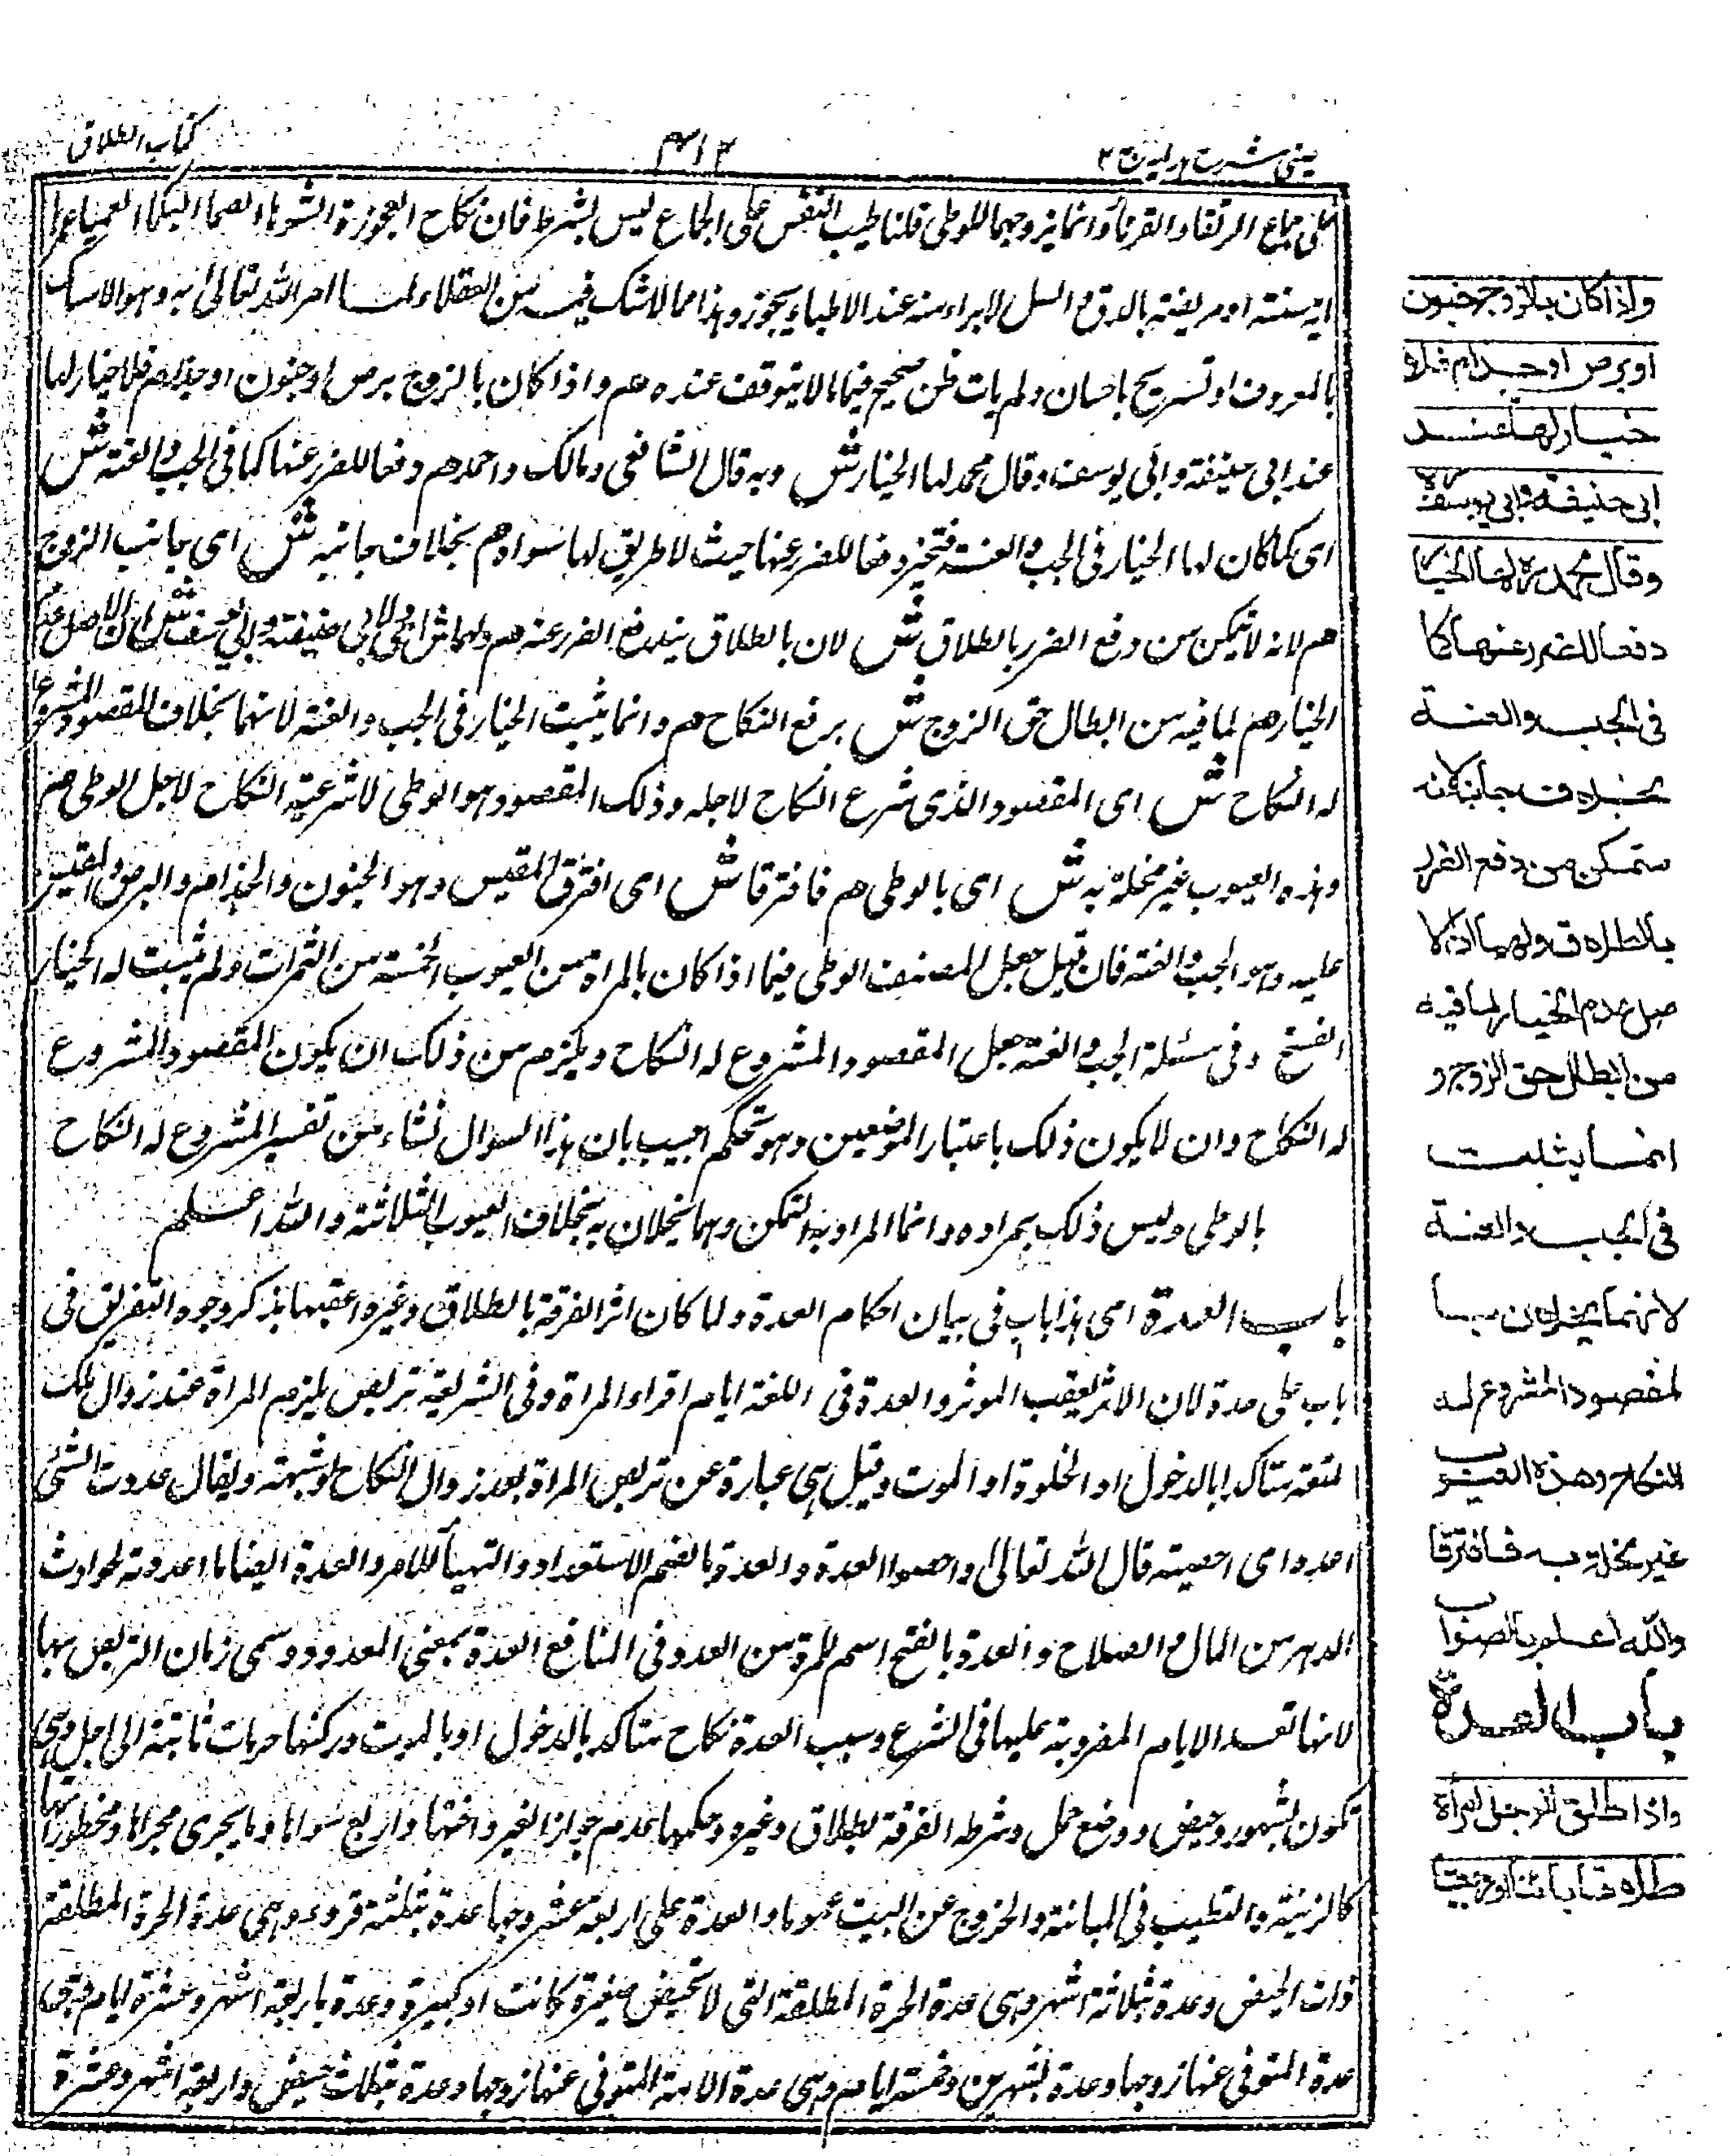 عینی شرح ہدایہ ج ۲
کتاب الطلاق
علی جماع الرتقاء والقرناء وانما یزوجہما للوطی قلنا طیب النفس علی الجماع لیس بشرط فان نکاح العجوزة الشوہا الصما البکما العمیا
سنتہ او مریضتہ بالدق والسل لابراء منہ عند الاطباء یجوز وہذا مما لاشک فیہ من العقلاء امر اللہ تعالی بہ وہو الامساک
بالمعروف او تسریح باحسان ولم یات ظن صحیح فیما لا یتوقف عندہ ھم واذا کان بالزوج برص او جنون او جذام فلا خیار لہا
عند ابی حنیفة وابی یوسف وقال محمد لہا الخیار ش وبہ قال الشافعی ومالک واحمد ھم دفعا للضرر عنہا کما فی الجب والعنة ش
ای کما کان لہا الخیار فی الجب والعنة فتخیر دفعا للضرر عنہا حیث لا طریق لہا سواہ ھم بخلاف جانبہ ش ای جانب الزوج
ھم لانہ لا تمکن من دفع الضرر بالطلاق ش لان بالطلاق یندفع الضرر عنہ ھم ولہما ش ای لابی حنیفة وابی یوسف ش ان الاصل عدم
الخیار ھم لما فیہ من ابطال حق الزوج ش برفع النکاح ھم وانما یثبت الخیار فی الجب والعنة لانہما بخلاف المقصود المشروع
لہ النکاح ش ای المقصود الذی شرع النکاح لاجلہ وذلک المقصود ہو الوطی لا شرعیة النکاح لاجل الوطی ھم
وہذہ العیوب غیر مخلة بہ ش ای بالوطی ھم فافترقا ش ای افترق المقیس وہو الجنون والجذام والبرص والمقیس
علیہ وہو الجب والعنة فان قیل جعل المصنف الوطی فیما اذا کان بالمراة من العیوب الخمسة من الثمرات ولم یثبت لہ الخیار
الفسخ وفی مسئلة الجب والعنة جعل المقصود المشروع لہ النکاح ویلزم من ذلک ان یکون المقصود المشروع
لہ النکاح وان لا یکون ذلک باعتبار الموضعین وہو تحکم اجیب بان ہذا السوال نشاء من تفسیر المشروع لہ النکاح
بالوطی ولیس ذلک بمرادہ وانما المراد بہ التمکن وہما یخلان بہ بخلاف العیوب الثلاثة واللہ اعلم
باب العدة ای ہذا باب فی بیان احکام العدة ولما کان اثر الفرقة بالطلاق وغیرہ اعقبہا بذکر وجوہ التفریق فی
باب علی حدة لان الاثر یعقب الموثر والعدة فی اللغة ایام اقراء المراة وفی الشریعة تربص یلزم المراة عند زوال ملک
المتعة متاکدا بالدخول او الخلوة او الموت وقیل ہی عبارة عن تربص المراة بعد زوال النکاح او شبہتہ ویقال عددت الشئ
اعدہ ای احصیتہ قال اللہ تعالی واحصوا العدة والعدة بالضم الاستعداد والتہیأ للامر والعدة ایضا ما اعددتہ لحوادث
الدہر من المال والصلاح والعدة بالفتح اسم للمرة من العدد وفی المنافع العدة بمعنی المعدود وسمی زمان التربص بہا
لانہا تعد الایام المضروبة علیہا فی الشرع وسبب العدة نکاح متاکد بالدخول او بالموت ورکنہا حرمات ثابتة الی اجل وہی
تکون بشہور وحیض ووضع حمل وشرطہ الفرقة بطلاق وغیرہ وحکمہا عدم جواز الغیر واختہا واربع سواہا وما یجری مجراہا ومحظوراتہا
کالزینة والتطیب فی المبانة والخروج عن البیت عموما والعدة علی اربعة عشر وجہا عدة بثلثة قروء وہی عدة الحرة المطلقة
ذات الحیض وعدة بثلاثة اشہر وہی عدة الحرة المطلقة التی لا تحیض صغیرة کانت او کبیرة وعدة باربعة اشہر وعشرة ایام وہی
عدة المتوفی عنہا زوجہا وعدة بشہرین وخمسة ایام وہی عدة الامة المتوفی عنہا زوجہا وعدة بثلاث حیض واربعة اشہر وعشرة
واذا کان بالزوج جنون
او برص او جذام فلا
خیار لہا عند
ابی حنیفة وابی یوسف
وقال محمد رہ لہا الخیار
دفعا للضرر عنہا کما
فی الجب والعنة
بخلاف جانبہ لانہ
متمکن من دفع الضرر
بالطلاق ولہما ان الا
صل عدم الخیار لما فیہ
من ابطال حق الزوج و
انما یثبت
فی الجب والعنة
لانہما یخلان با
لمقصود المشروع لہ
النکاح وہذہ العیوب
غیر مخلة بہ فافترقا
واللہ اعلم بالصواب
باب العدة
واذا طلق الرجل امرأة
طلاقا بائنا او رجعیا